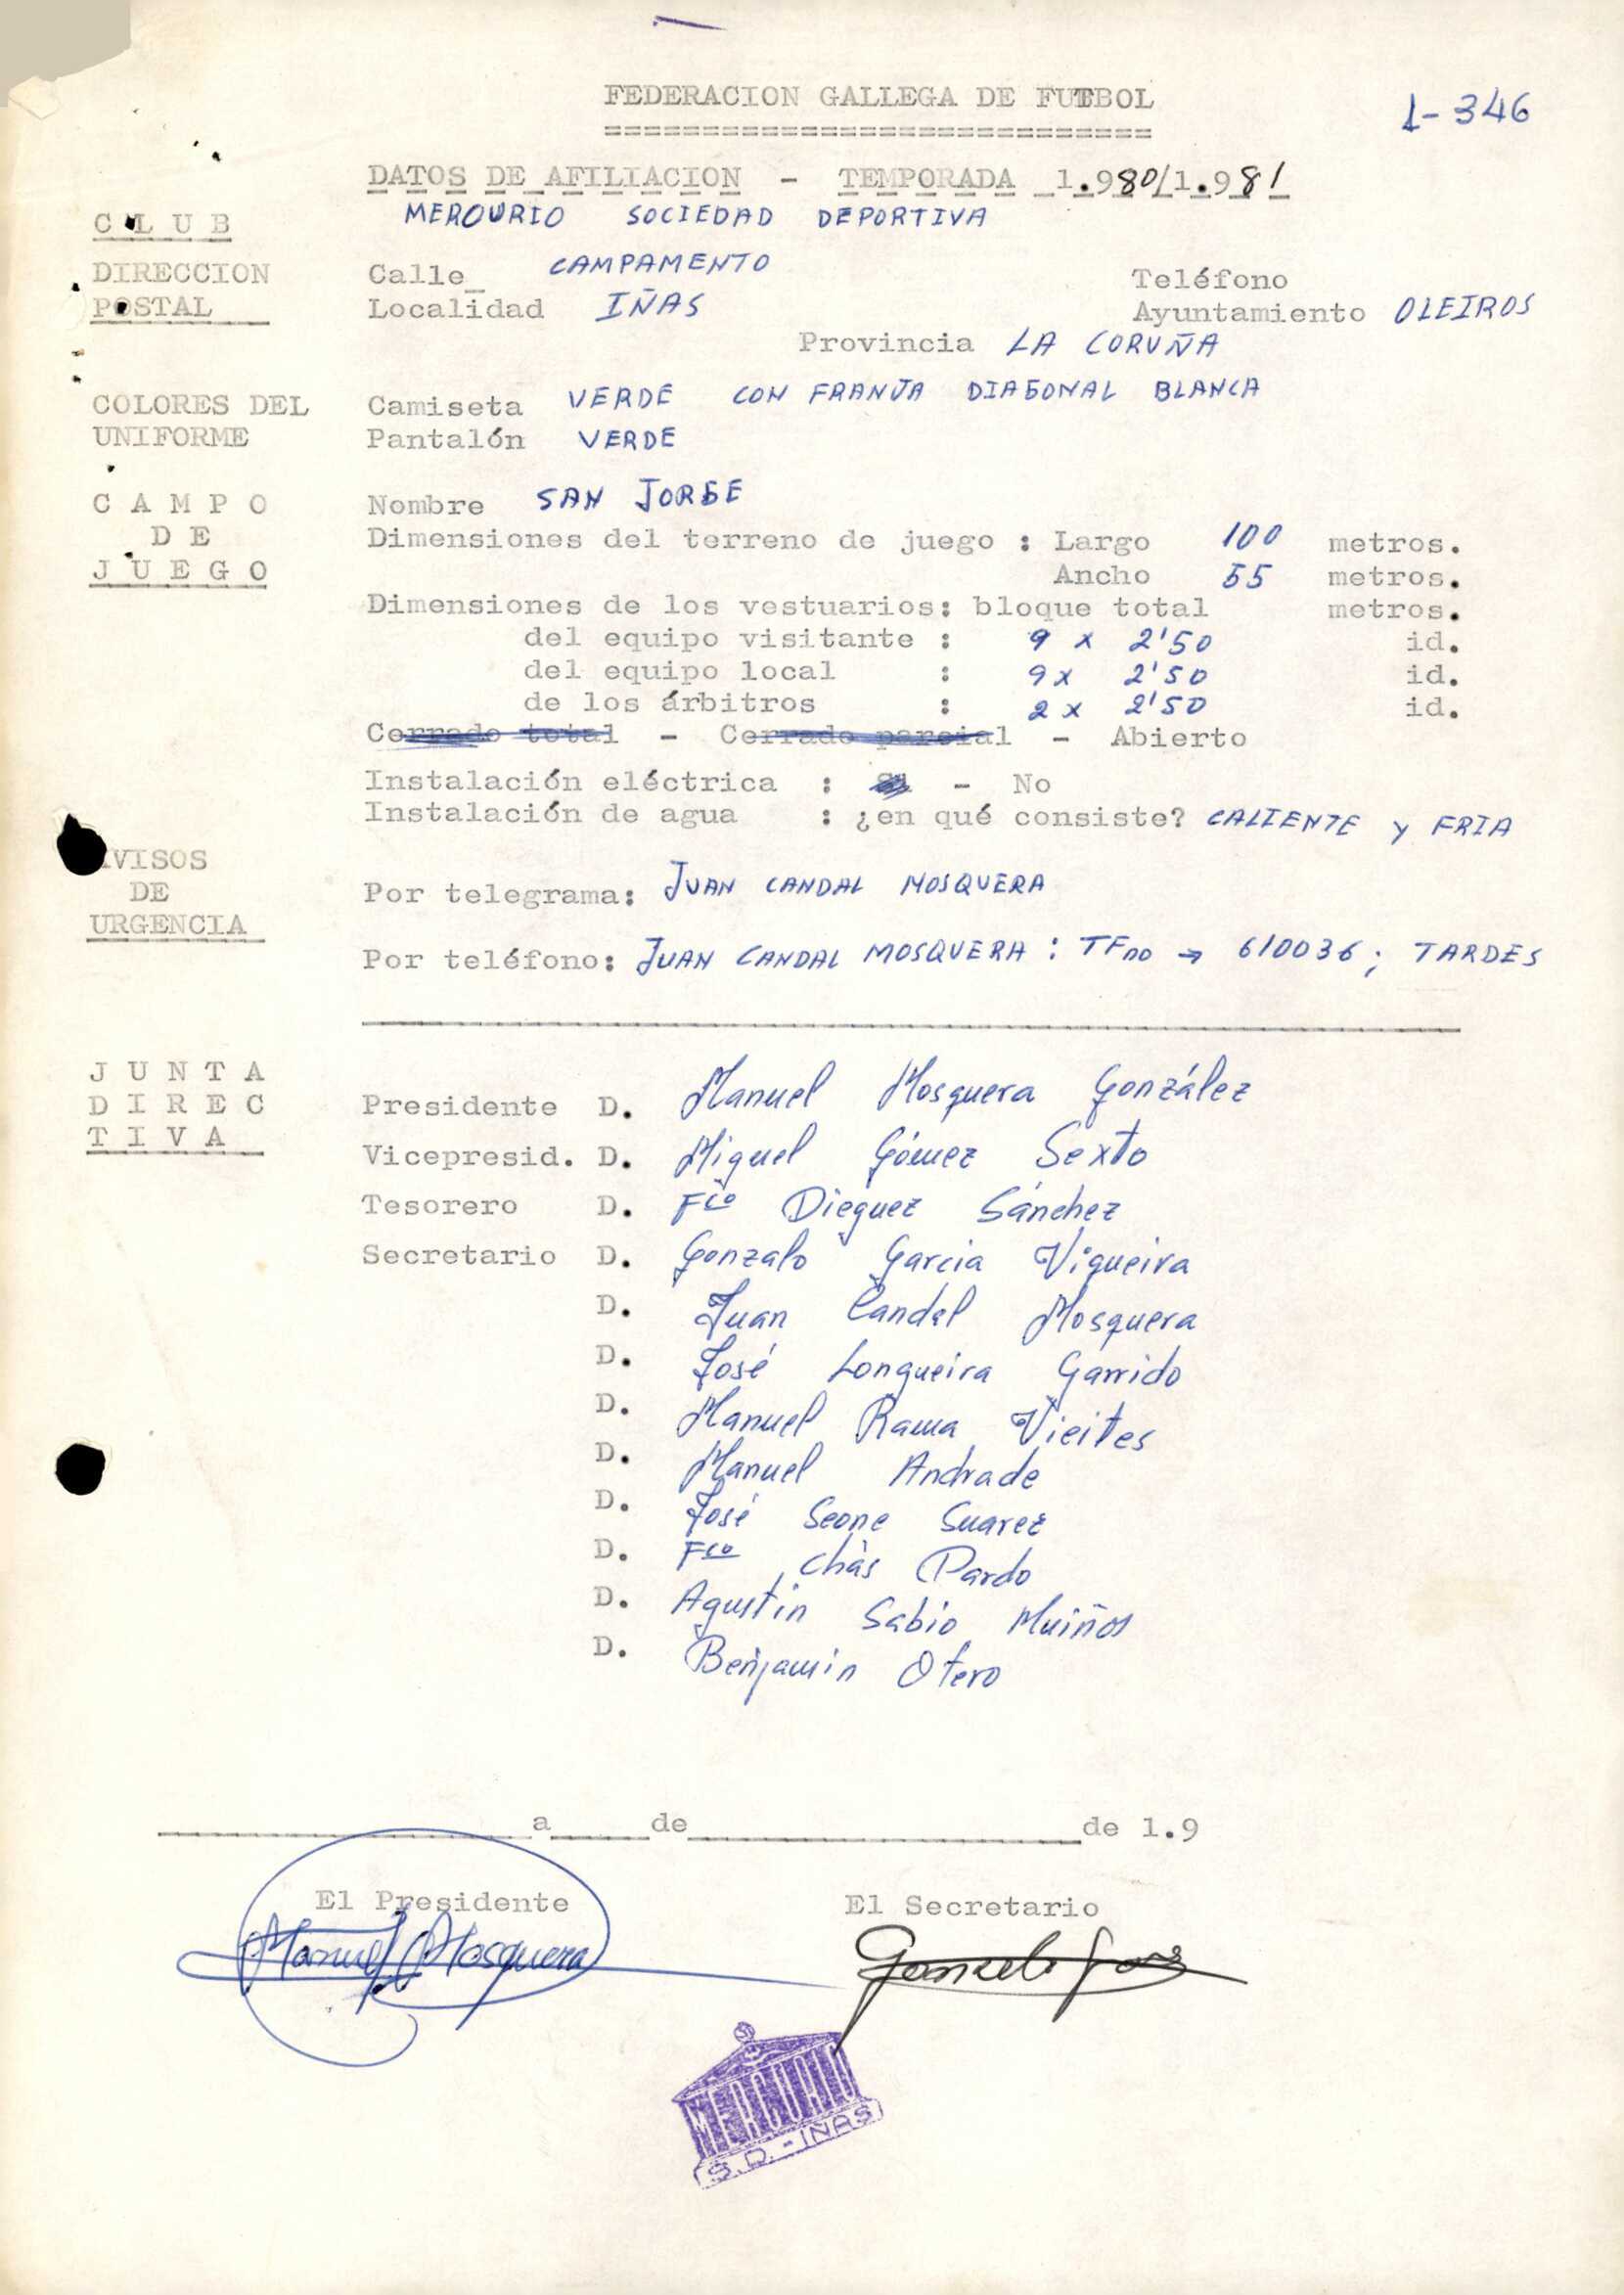 FEDERACION GALLEGA DE FUTBOL
============================
1-346
DATOS DE AFILIACION - TEMPORADA 1.980/1.981
CLUB MERCURIO SOCIEDAD DEPORTIVA
DIRECCION Calle CAMPAMENTO Teléfono
POSTAL Localidad IÑAS Ayuntamiento OLEIROS
Provincia LA CORUÑA
COLORES DEL Camiseta VERDE CON FRANJA DIAGONAL BLANCA
UNIFORME Pantalón VERDE
CAMPO Nombre SAN JORGE
DE Dimensiones del terreno de juego : Largo 100 metros.
JUEGO Ancho 55 metros.
Dimensiones de los vestuarios: bloque total metros.
del equipo visitante : 9 x 2'50 id.
del equipo local : 9x 2'50 id.
de los árbitros : 2x 2'50 id.
Cerrado total - Cerrado parcial - Abierto
Instalación eléctrica : - No
Instalación de agua : ¿en qué consiste? CALIENTE Y FRIA
VISOS
DE Por telegrama: JUAN CANDAL MOSQUERA
URGENCIA
Por teléfono: JUAN CANDAL MOSQUERA : TFno → 610036; TARDES
JUNTA
DIREC Presidente D. Manuel Mosquera González
TIVA
Vicepresid. D. Miguel Gómez Sexto
Tesorero D. Fco Dieguez Sánchez
Secretario D. Gonzalo Garcia Vigueira
D. Juan Candal Mosquera
D. José Longueira Garrido
D. Manuel Rama Vieites
D. Manuel Andrade
D. José Seone Suarez
D. Fco Chás Pardo
D. Agustin Sabio Muiños
D. Benjamin Otero
a de de 1.9
El Presidente El Secretario
Manuel Mosquera
MERCURIO
S.D.-IÑAS